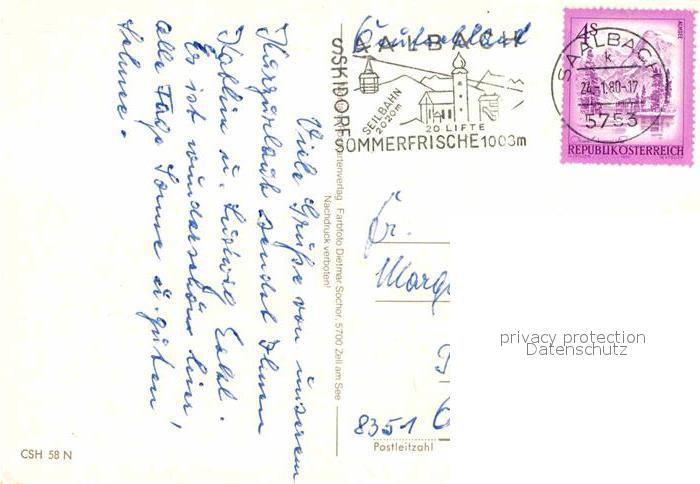 Viele Grüße von unserem
Kurzurlaub sendet Ihnen
u. Ludwig
Es ist wunderschön hier,
alle Tage Sonne u. guten
Schnee.
CSH 58 N
Farbfoto Dietmar Sochor, 5700 Zell am See
Nachdruck verboten!
SAALBACH
SKIDORF
SEILBAHN
2020m
20 LIFTE
SOMMERFRISCHE 1003m
SAALBACH
k
24.-1.80-17
5753
4S
ALMSEE
REPUBLIK ÖSTERREICH
Fr.
8351
Postleitzahl
privacy protection
Datenschutz